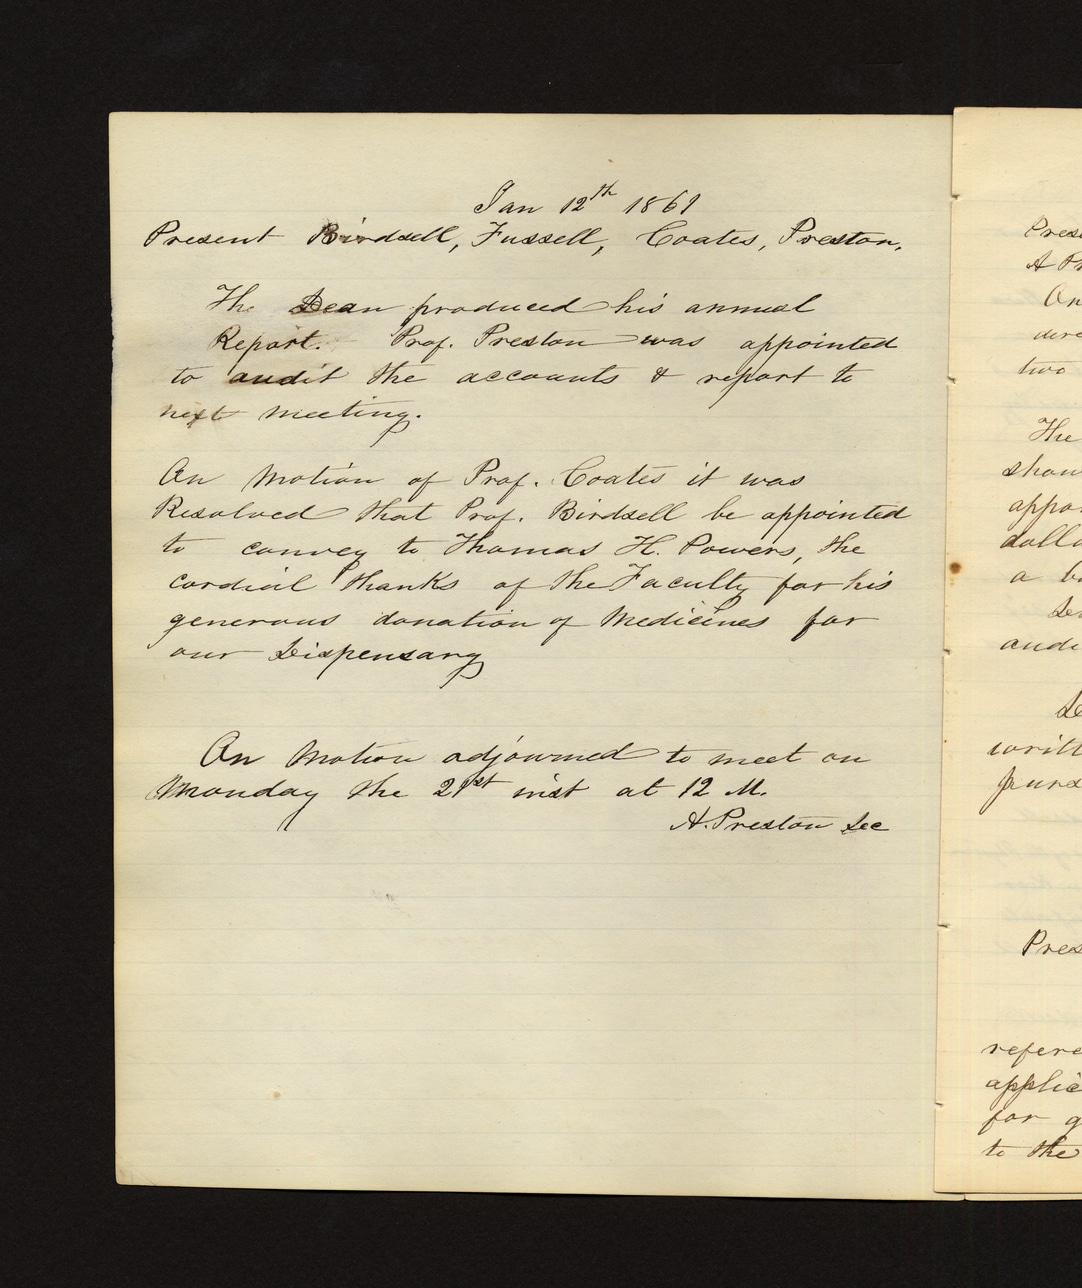 Jan 12th 1861
Present Birdsell, Fussell, Coates, Preston,
The Dean produced his annual
Report. Prof. Preston was appointed
to audit the accounts & report to
next meeting.
On Motion of Prof. Coates it was
Resolved that Prof. Birdsell be appointed
to convey to Thomas H. Powers, the
cordial thanks of the Faculty for his
generous donation of Medicines for
our Dispensary
On Motion adjourned to meet on
Monday the 21st inst at 12 M.
A. Preston Sec
Pres
A Pr
On
dire
two
The
show
appo
dolla
a b
De
audi
writt
purs
Pres
refere
applic
for g
to the